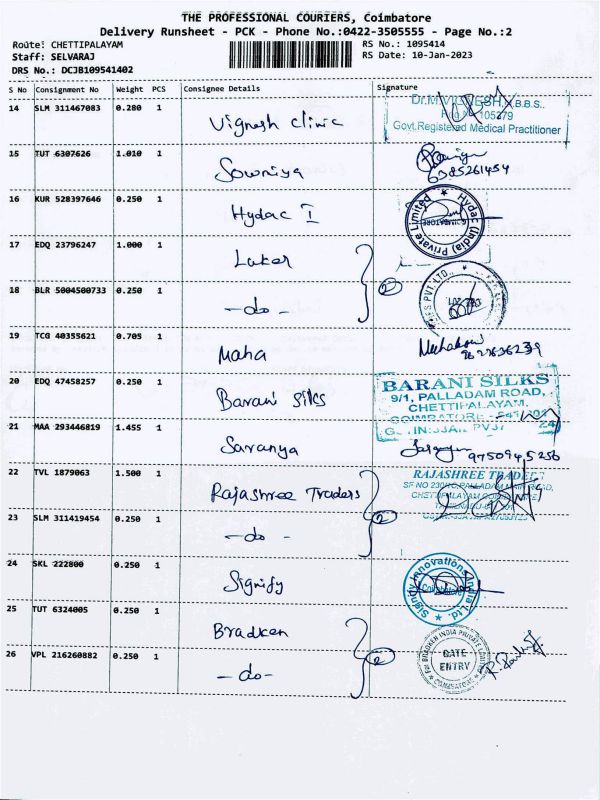 THE PROFESSIONAL COURIERS, Coimbatore
Delivery Runsheet - PCK - Phone No.:0422-3505555 - Page No.:2
Route: CHETTIPALAYAM
RS No.: 1095414
Staff: SELVARAJ
RS Date: 10-Jan-2023
DRS No.: DCJB109541402
S No Consignment No Weight PCS Consignee Details Signature
14 SLM 311467083 0.280 1 Vignesh Clinic
Govt.Registered Medical Practitioner
15 TUT 6307626 1.010 1 Sowniya
6385261454
16 KUR 528397646 0.250 1 Hydac I
Hydac (India) Private Limited
17 EDQ 23796247 1.000 1 Laker
18 BLR 5004500733 0.250 1 - do - 2
19 TCG 40355621 0.705 1 Maha
20 EDQ 47458257 0.250 1 Barani Silks
BARANI SILKS
9/1, PALLADAM ROAD,
CHETTIPALAYAM,
21 MAA 293446819 1.455 1 Saranya
22 TVL 1879063 1.500 1 Rajashree Traders
RAJASHREE
23 SLM 311419454 0.250 1 - do - 2
24 SKL 222800 0.250 1 Signify
Signify Innovations India Ltd.
Coimbatore
25 TUT 6324005 0.250 1 Bradken
26 VPL 216260882 0.250 1 - do - 2
For BRADKEN INDIA PRIVATE LIMITED
GATE
ENTRY
COIMBATORE